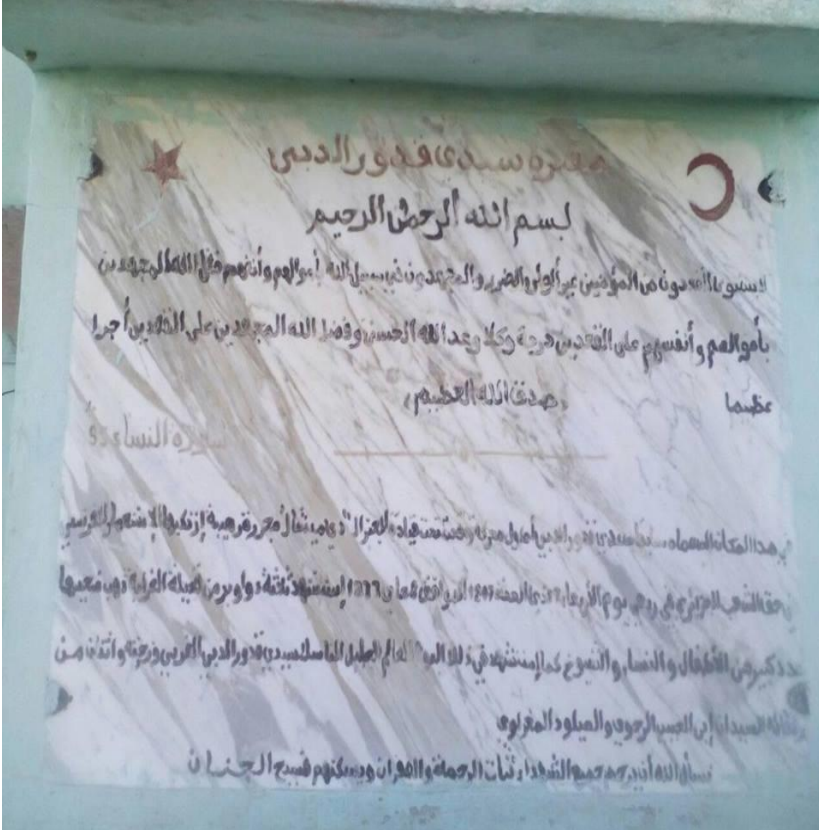 مقبرة سيدي قدور الدبي
بسم الله الرحمن الرحيم
لا يستوي القعدون من المؤمنين غير أولي الضرر والمجهدون في سبيل الله بأموالهم وأنفسهم فضل الله المجهدين
بأموالهم وأنفسهم على القعدين درجة وكلا وعد الله الحسنى وفضل الله المجهدين على القعدين أجرا
عظيما
صدق الله العظيم
سورة النساء 95
هذا المكان سيدي قدور الدبي أول تحت قيادة الجنرال مجزرة رهيبة إرتكبها الإستعمار الفرنسي
حق الشعب الجزائري في يوم الأربعاء الموافق ثلاثة دواوير من قبيلة الغرابة ذهب ضحيتها
عدد كبير من الأطفال والنساء والشيوخ كما إستشهد في ذلك اليوم العالم الجليل سيدي قدور الدبي الغريبي وزوجته واثنان من
السيدان والميلود المغراوي
نسأل الله أن يرحم جميع الشهداء الرحمة والغفران ويسكنهم فسيح الجنان